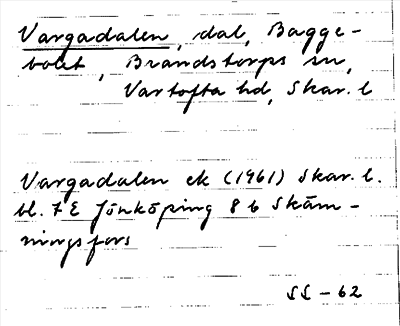 Vargadalen, dal, Bagge-
bolet, Brandstorps sn,
Vartofta hd, Skar. l
Vargadalen ek (1961) Skar. l.
bl. 7 E Jönköping 8 b Skäm-
ningsfors
SS - 62